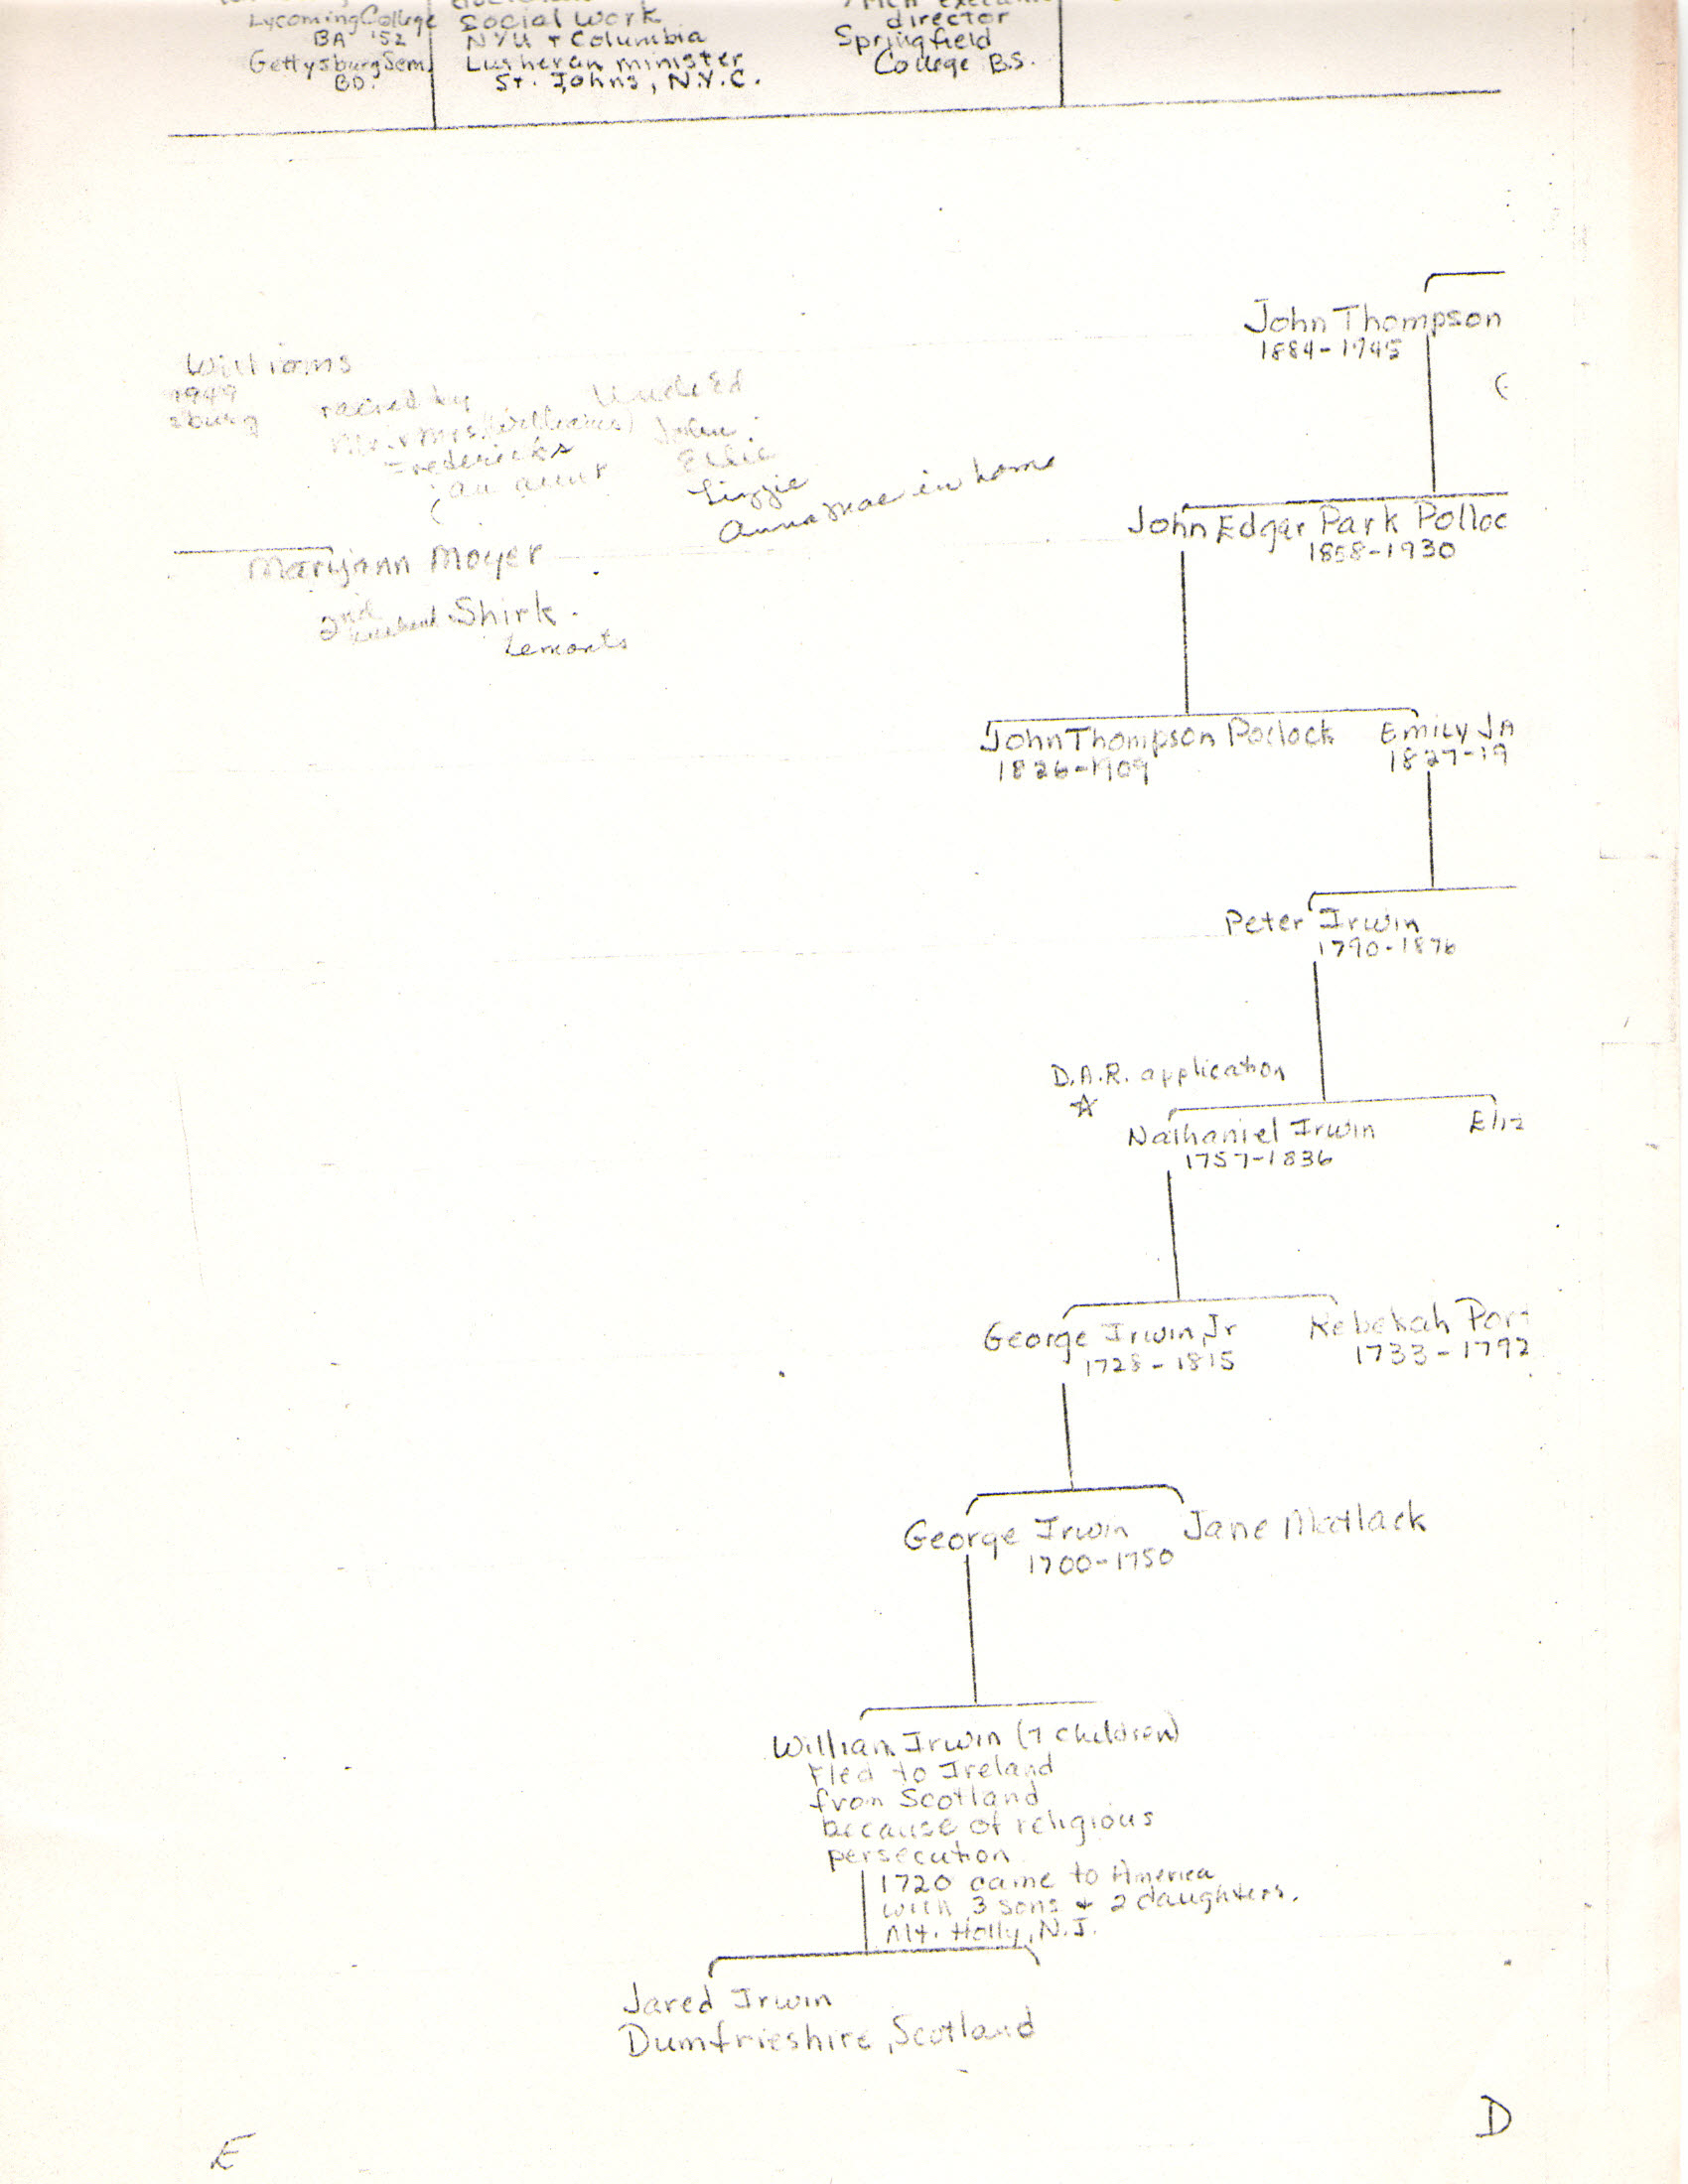 Lycoming College
BA '52
Gettysburg Sem.
BD.
Social Work
NYU + Columbia
Lutheran minister
St. Johns, N.Y.C.
director
Springfield
College B.S.
John Thompson
1884-1945
Williams
1949
sburg
raised by
Mr. & Mrs. (Williams)
Fredericks
(an aunt
Uncle Ed
John
Effie
Lizzie
Anna Mae in home
John Edgar Park Polloc
1858-1930
Maryann Moyer
2nd husband Shirk.
John Thompson Pollock
1826-1909
Emily JA
1827-19
Peter Irwin
1790-1876
D.A.R. application
☆
Nathaniel Irwin
1757-1836
Eliz
George Irwin, Jr
1728-1815
Rebekah Por
1733-1792
George Irwin
1700-1750
Jane Matlack
William Irwin (7 children)
Fled to Ireland
from Scotland
because of religious
persecution
1720 came to America
with 3 sons + 2 daughters.
Mt. Holly, N.J.
Jared Irwin
Dumfrieshire, Scotland
E
D